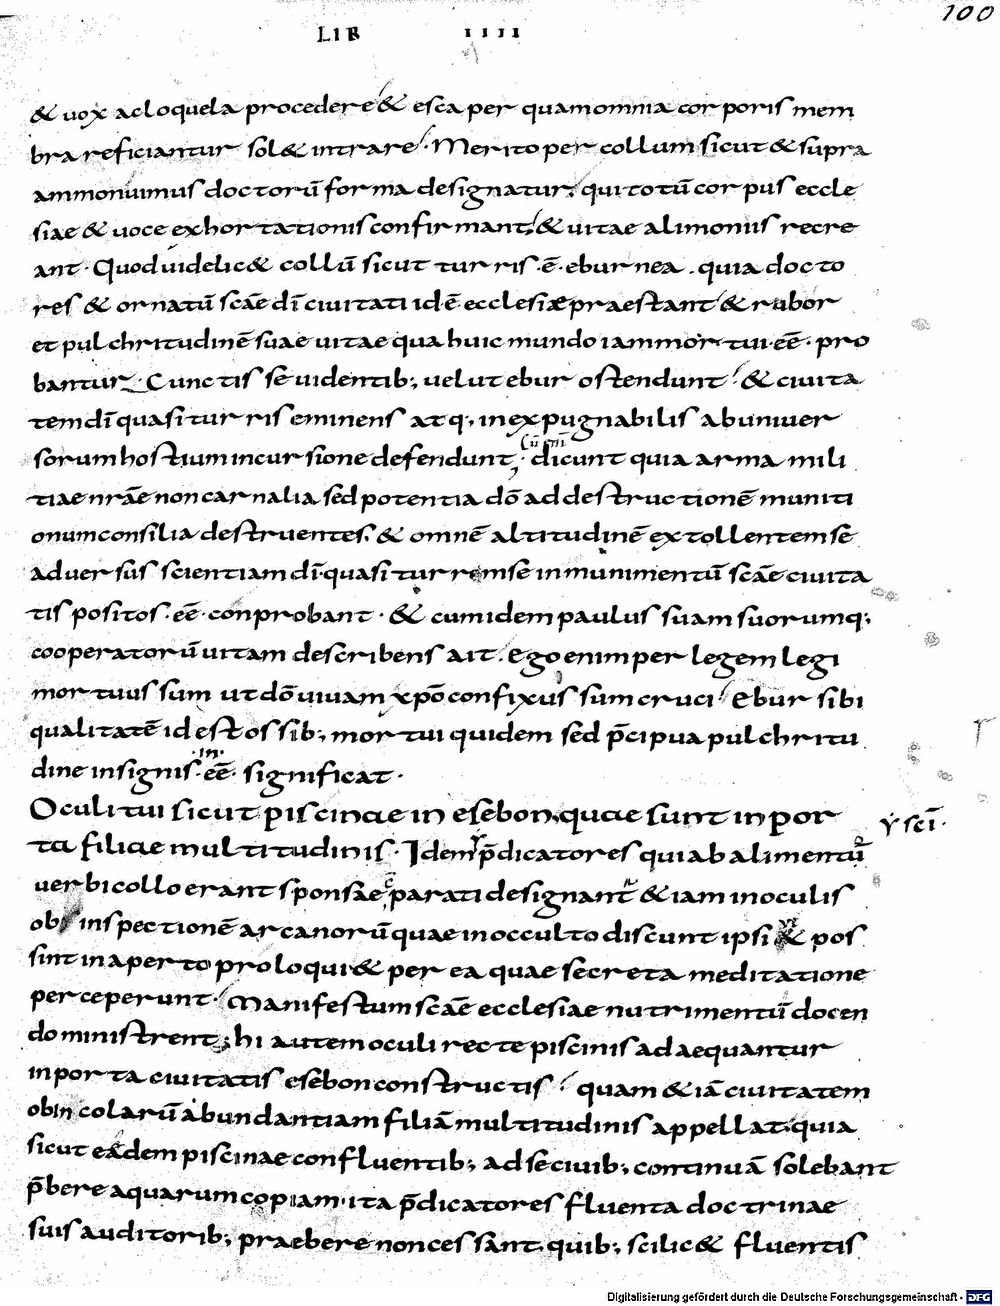 100
LIB IIII
& uox ac loquela procedere & esca per quam omnia corporis mem
bra reficiantur sol& intrare. Merito per collum sicut & supra
ammonuimus doctorū forma designatur. qui totū corpus eccle
siae & uoce exhortationis confirmant, & uitae alimoniis recre
ant. Quod uidelic& collū sicut turris .ē. eburnea. quia docto
res & ornatū scāe dī ciuitati id ē ecclesiæ praestant & robor
et pulchritudinē suae uitae qua huic mundo iam mortui .eē. pro
bantur. Cunctis se uidentib; uelut ebur ostendunt. & ciuita
tem dī quasi turris eminens atq; inexpugnabilis ab uniuer
sorum hostium incursione defendunt; dicunt quia arma mili
tiae nrāe non carnalia sed potentia dō ad destructionē muniti
onum consilia destruentes. & omnē altitudinē extollentem se
aduersus scientiam dī. quasi turrem se in munimentū scāe ciuita
tis positos .eē. conprobant. & cum idem paulus suam suorumq;
cooperatorū uitam describens ait. ego enim per legem legi
mortuus sum ut dō uiuam xpō confixus sum cruci. Ebur sibi
qualitatē id est ossib; mortui quidem sed p̄cipua pulchritu
dine insignis .eē. significat.
Oculi tui sicut piscinae in esebon. quae sunt in por
ta filiae multitudinis. Idem p̄dicatores qui ab alimentū
uerbi collo erant sponsae cparati designant & iam in oculis
ob inspectionē arcanorū quae in occulto discunt ipsi & pos
sint in aperto proloqui & per ea quae secreta meditatione
perceperunt. Manifestum scāe ecclesiae nutrimentū docen
do ministrent; hi autem oculi recte piscinis adaequantur
in porta ciuitatis esebon constructis. quam & iā ciuitatem
ob incolarū abundantiam filiā multitudinis appellat. quia
sicut eaedem piscinae confluentib; ad se ciuib; continuā solebant
p̄bere aquarum copiam. ita p̄dicatores fluenta doctrinae
suis auditorib; praebere non cessant. quib; scilic& fluentis
Digitalisierung gefördert durch die Deutsche Forschungsgemeinschaft - DFG